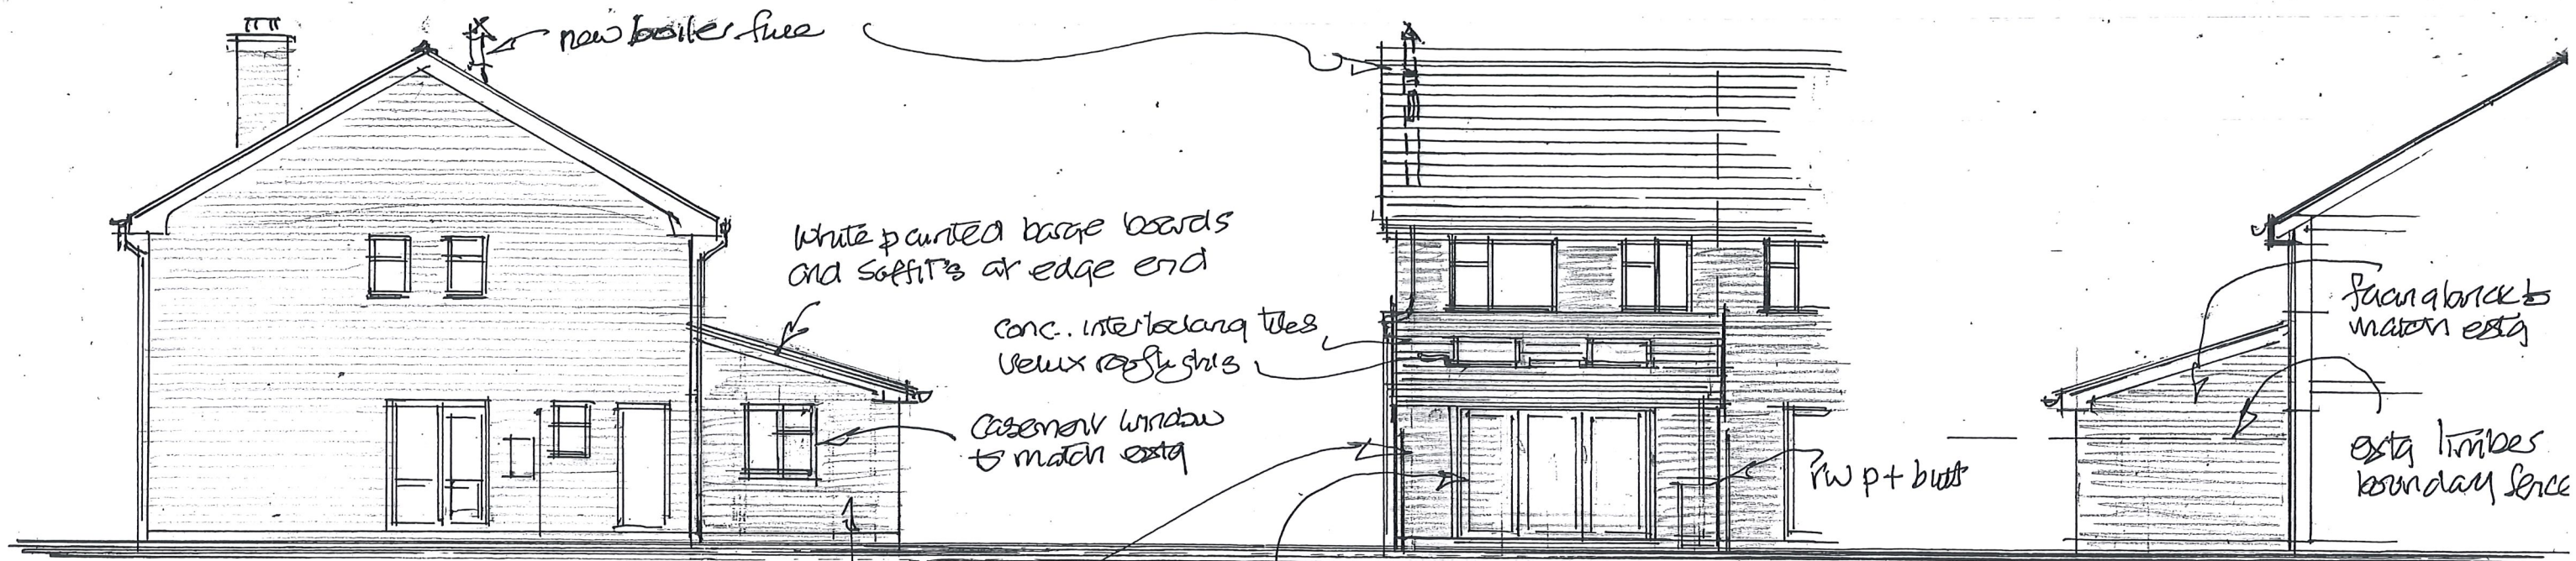 new boiler flue
white painted barge boards
and soffit's at edge end
conc. interlocking tiles
velux rooflights
casement window
to match extg
rwp + butt
facing brick to
match extg
extg timber
boundary fence